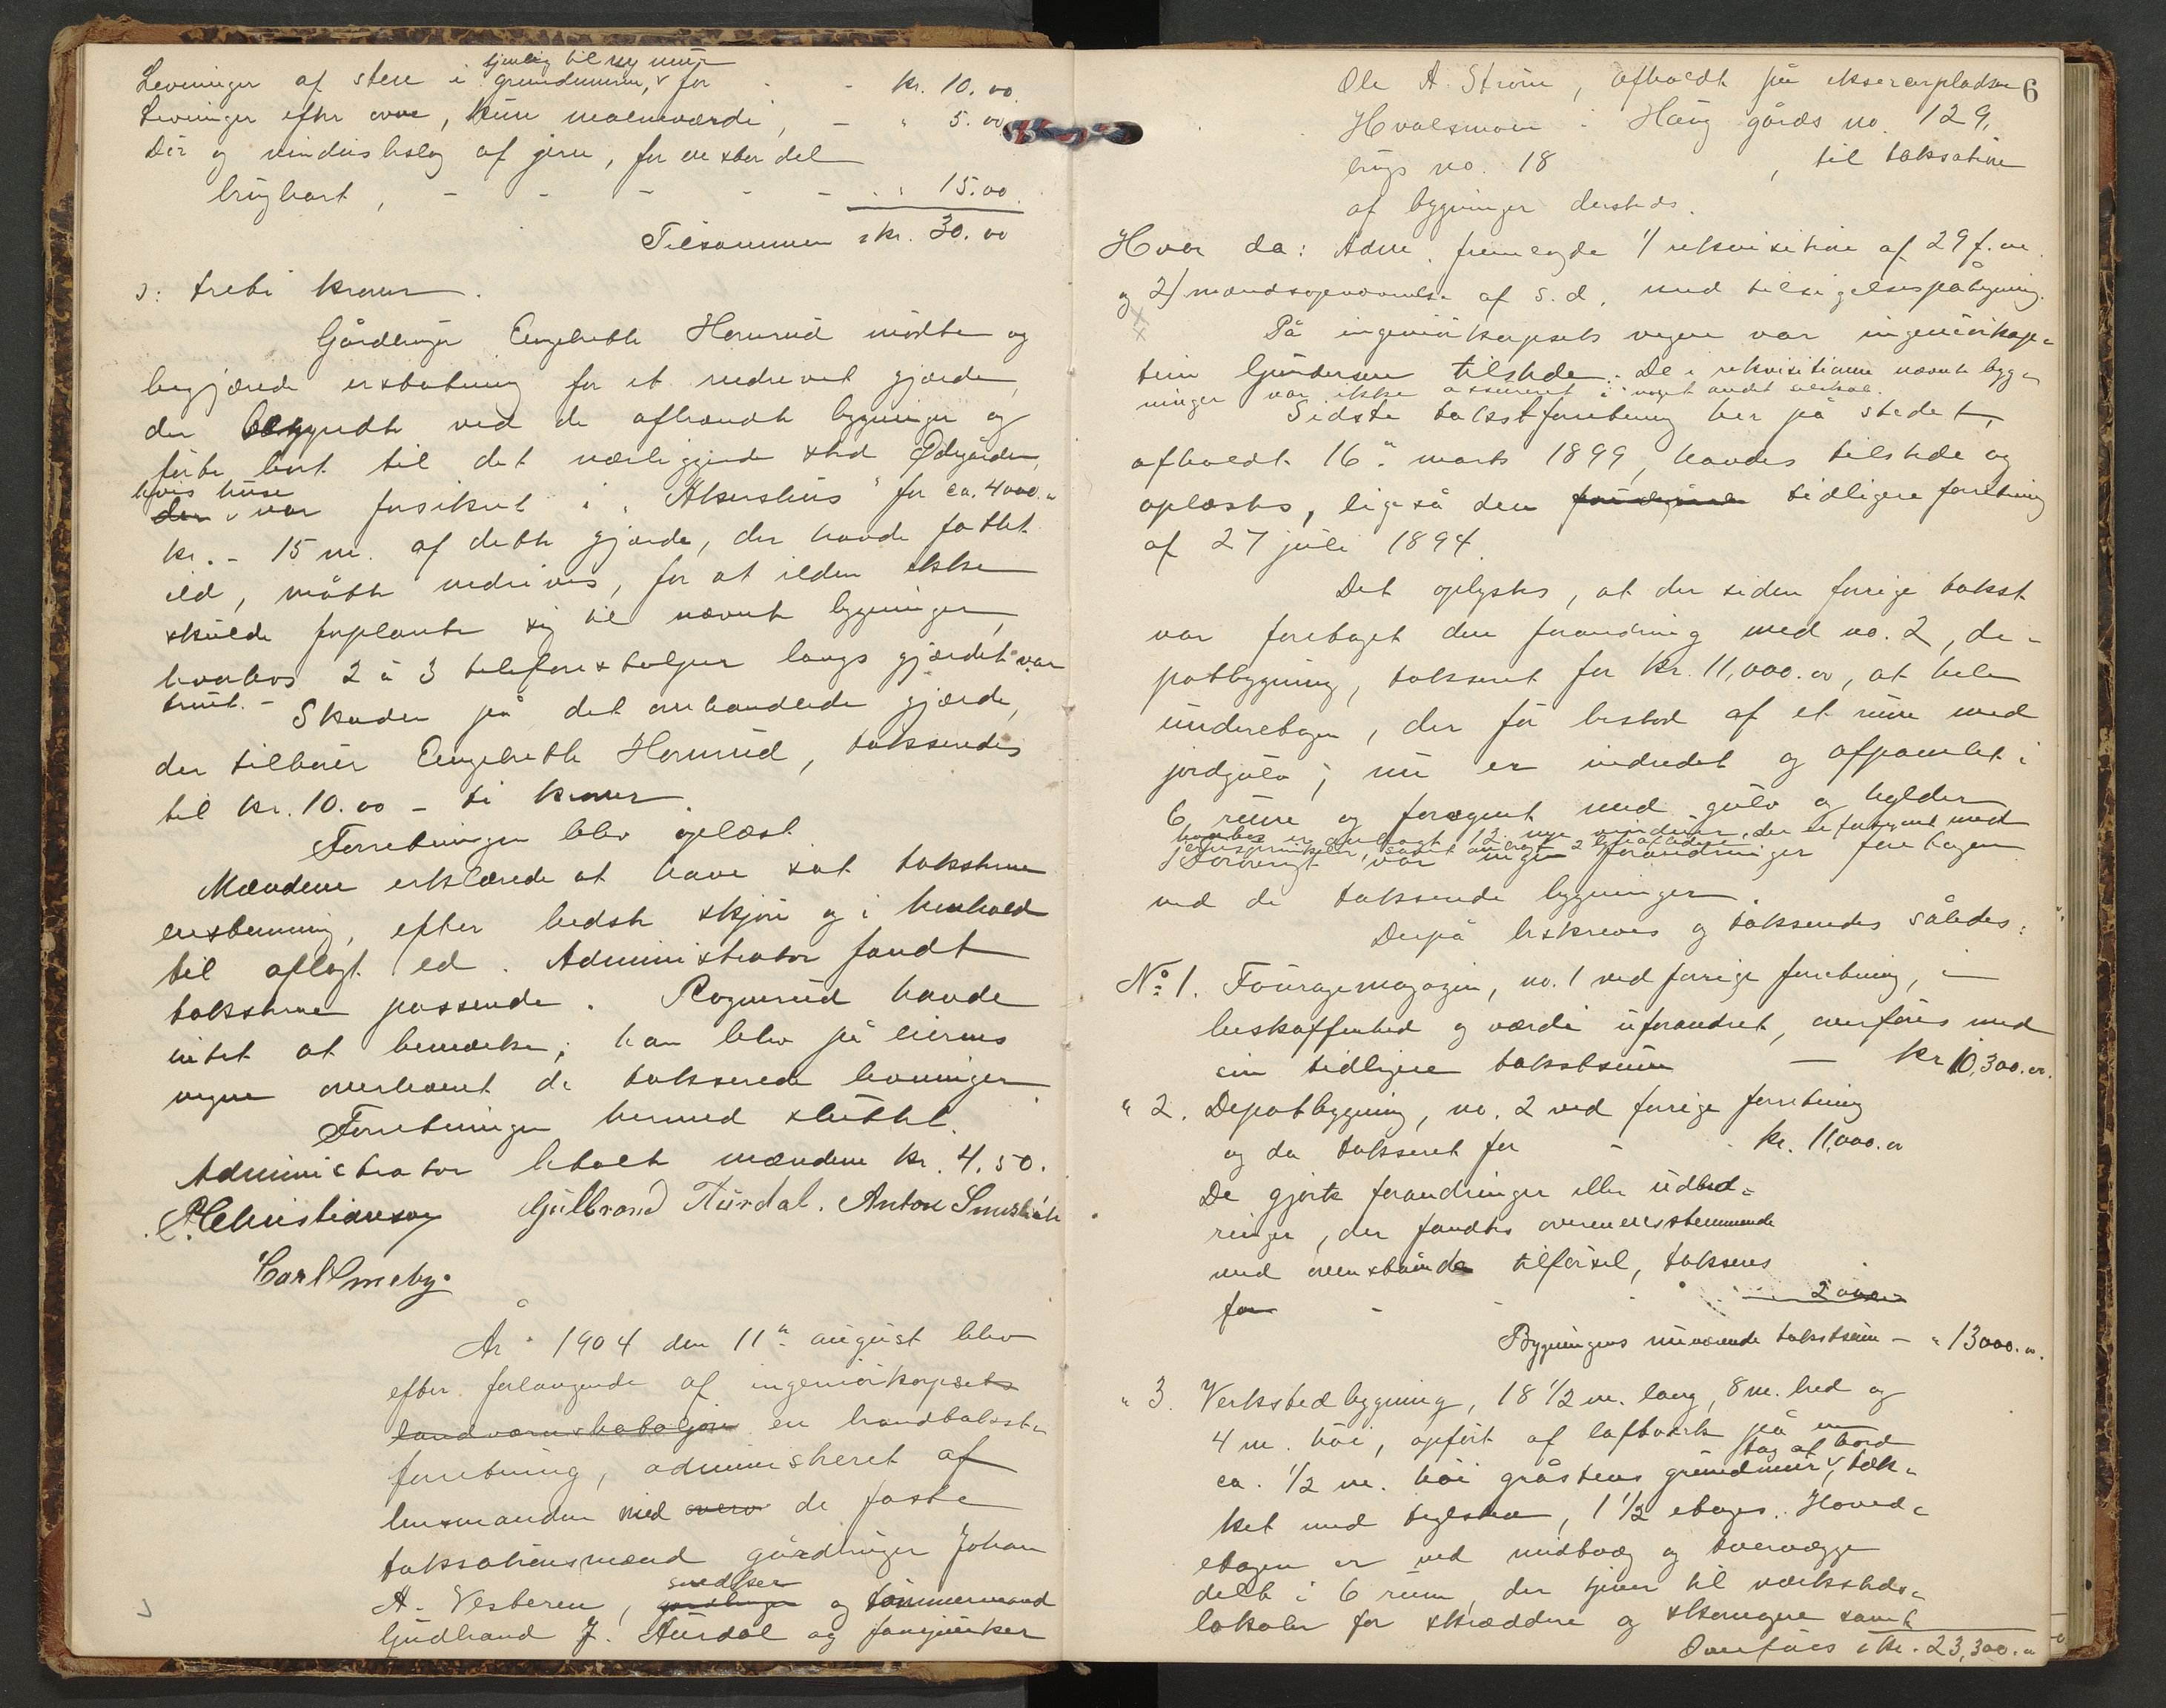 tjenlig til ny mur
Levninger af sten i grundmuren, v for - - kr. 10.00
Levninger efter ovne, kun malmværdi, - " 5.00
Dør og vindusbeslag af jern, for en stor del
brugbart, - - - - - " 15.00
Tilsammen kr. 30.00
ɔ: treti kroner.
Gårdbruger Engebreth Homrud mødte og
begjærede erstatning for et nedrevet gjærde,
der begyndte ved de afbrændte bygninger og
førte bort til det nærliggende sted Ødegården,
hvis huse
der v var forsikret i "Akershus" for ca. 4000.
kr. - 15 m. af dette gjærde, der havde fattet
ild, måtte nedrives, for at ilden ikke
skulde forplante sig til nævnte bygninger,
hvorhos 2 à 3 telefonstolper langs gjærdet var
truet. -
Skaden på det omhandlede gjærde,
der tilhører Engebreth Homrud, taksertes
til kr. 10.00 - ti kroner.
Forretningen blev oplæst
Mændene erklærede at have sat taksterne
enstemmig, efter bedste skjøn og i henhold
til aflagt ed. Administrator fandt
taksterne passende. Rognerud havde
intet at bemærke; han blev på eierens
vegne overleveret de takserede levninger.
Forretningen hermed sluttet.
Administrator betalte mændene kr. 4.50.
P. Christiansen Gulbrand Aurdal. Anton
Carl Smeby.
År 1904 den 11te august blev
efter forlangende af ingeniørkorpsets
landværnsbataljon en brandtakst-
forretning, administreret af
lensmanden med de faste
taksationsmænd gårdbruger Johan
snedker
A. Vesteren, gårdbruger og tømmermand
Gudbrand J. Aurdal og fanejunker
6
Ole A. Strøm, afholdt på ekserserpladsen
Hvalsmoen i Haug gårds no. 129,
brugs no. 18, til taksation
af bygninger dersteds.
Hvor da: Adm. fremlagde 1/ rekvisition af 29 f. m.
og 2/ mandsopnævnelse af s. d. med tilsigelsespåtegning.
På ingeniørkorpsets vegne var ingeniørkap-
tein Gundersen tilstede. De i rekvisitionen nævnte byg-
ninger var ikke assureret i noget andet selskab.
Sidste takstforretning her på stedet,
afholdt 16de marts 1899, havdes tilstede og
oplæstes, ligeså den tidligere forretning
af 27 juli 1894.
Det oplystes, at der siden forrige takst
var foretaget den forandring med no. 2, de-
potbygning, takseret for kr. 11,000.00, at hele
underetagen, der før bestod af et rum med
jordgulv, nu er indredet og afpanelet i
6 rum og forsynet med gulv og hylder,
hvorhos er anbragt 12 nye vinduer, der er forsynet med
jernsprinkler, samt anbragt 2
Forøvrigt var ingen forandringer foretagen
ved de takserede bygninger.
Derpå beskreves og taksertes således:
No 1. Fouragemagazin, no. 1 ved forrige forretning, i
beskaffenhed og værdi uforandret, overføres med
sin tidligere takstsum - kr 10,300.00.
" 2. Depotbygning, no. 2 ved forrige forretning
og da takseret for - - kr. 11,000.00
De gjorte forandringer eller udbed-
ringer, der fandtes overensstemmende
med ovenstående tilførsel, takseres
for - - - " 2000.00
Bygningens nuværende takstsum - " 13000.00.
" 3. Verkstedbygning, 18 1/2 m. lang, 8 m. bred og
4 m. høi, opført af laftverk på en
tag af bord
ca. 1/2 m. høi gråstens grundmur v, tæk-
ket med teglsten, 1 1/2 etages. Hoved-
etagen er ved midtvæg og tvervægge
delt i 6 rum, der tjener til værksteds-
lokaler for skræddere og skomagere samt
Overføres kr. 23,300.00